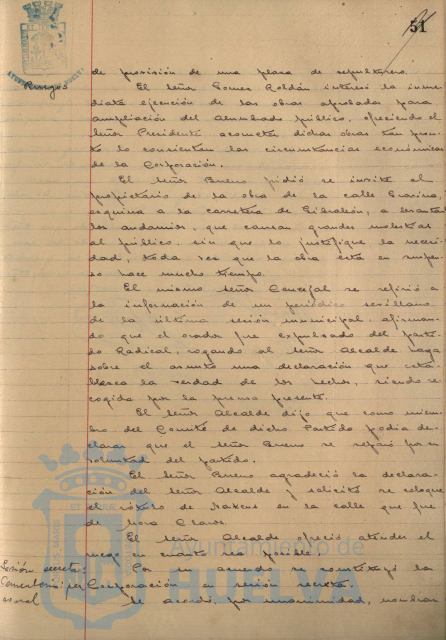 51
Ruegos
de provisión de una plaza de sepulturero.
El Señor Gomez Roldán interesó la inme-
diata ejecución de las obras aprobadas para
ampliación del Alumbrado público, ofreciendo el
Señor Presidente acometer dichas obras tan pron-
to lo consientan las circunstancias económicas
de la Corporación.
El Señor Bueno pidió se invite al
propietario de la obra de la calle
esquina a la carretera de Gibraleón, a levantar
los andamios, que causan grandes molestias
al público, sin que lo justifique la necesi-
dad, toda vez que la obra está en suspen-
so hace mucho tiempo.
El mismo Señor Concejal se refirió a
la información de un periódico sevillano
de la última sesión municipal, afirman-
do que el orador fue expulsado del parti-
do Radical, rogando al Señor Alcalde haga
sobre el asunto una declaración que esta-
blezca la verdad de los hechos, siendo re-
cogida por la prensa presente.
El Señor Alcalde dijo que como miem-
bro del Comité de dicho Partido podía de-
clarar que el Señor Bueno se separó por su
voluntad del partido.
El Señor Bueno agradeció la declara-
ción del Señor Alcalde y solicitó se coloque
el rótulo de Nakens en la calle que fue
de Mora Claros.
El Señor Alcalde ofreció atender el
ruego en cuanto sea posible.
Sesión secreta:
Por un acuerdo se constituyó la
Corporación en sesión secreta.
Se acordó, por unanimidad, nombrar
Ayuntamiento de
HUELVA